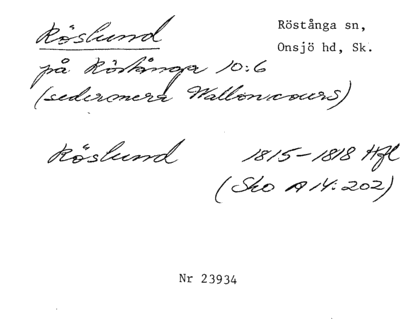 Röslund
Röstånga sn,
Onsjö hd, Sk.
på Röstånga 10:6
(sedermera
Röslund 1815–1818 Hfl
(Sko A14:202)
Nr 23934